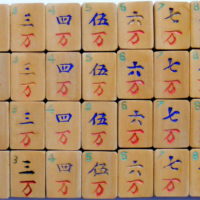 三 四 伍 六 七
万 万 万 万 万
3 4 5 6 7
三 四 伍 六 七
万 万 万 万 万
3 4 5 6 7
三 四 伍 六 七
万 万 万 万 万
3 4 5 6 7
三 四 伍 六 七
万 万 万 万 万